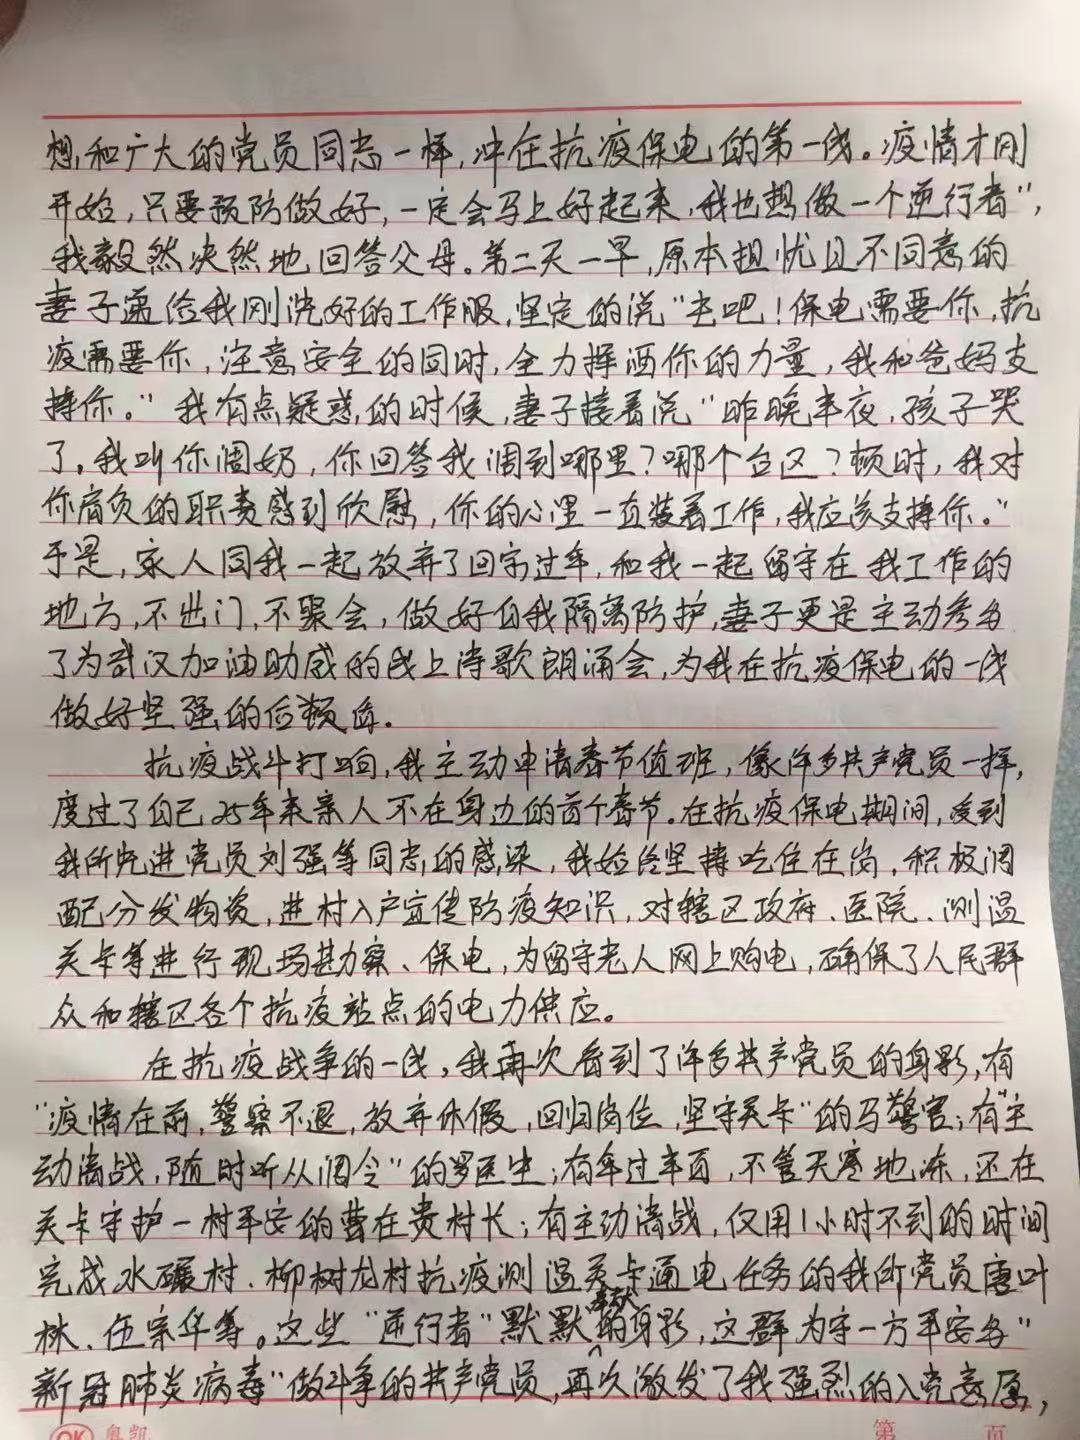 想和广大的党员同志一样,冲在抗疫保电的第一线。疫情才刚
开始,只要预防做好,一定会马上好起来,我也想做一个逆行者",
我毅然决然地回答父母。第二天一早,原本担忧且不同意的
妻子递给我刚洗好的工作服,坚定的说"去吧!保电需要你,抗
疫需要你,注意安全的同时,全力挥洒你的力量,我和爸妈支
持你。"我有点疑惑的时候,妻子接着说"昨晚半夜,孩子哭
了,我叫你调奶,你回答我调到哪里?哪个台区?顿时,我对
你肩负的职责感到欣慰,你的心里一直装着工作,我应该支持你。"
于是,家人同我一起放弃了回家过年,和我一起留守在我工作的
地方,不出门,不聚会,做好自我隔离防护,妻子更是主动参与
了为武汉加油助威的线上诗歌朗诵会,为我在抗疫保电的一线
做好坚强的后盾。
抗疫战斗打响,我主动申请春节值班,像许多共产党员一样,
度过了自己25年来亲人不在身边的首个春节。在抗疫保电期间,受到
我所先进党员刘强等同志的感染,我始终坚持吃住在岗,积极调
配分发物资,进村入户宣传防疫知识,对辖区政府、医院、测温
关卡等进行现场勘察、保电,为留守老人网上购电,确保了人民群
众和辖区各个抗疫站点的电力供应。
在抗疫战争的一线,我再次看到了许多共产党员的身影,有
"疫情在前,警察不退,放弃休假,回归岗位,坚守关卡"的马警官;有"主
动请战,随时听从调令"的罗医生;有年过半百,不管天寒地冻,还在
关卡守护一村平安的曹在贵村长;有主动请战,仅用1小时不到的时间
完成水碾村、柳树龙村抗疫测温关卡通电任务的我所党员唐叶
林、伍宗华等。这些"逆行者"默默奉献的身影,这群为守一方平安与"
新冠肺炎病毒"做斗争的共产党员,再次激发了我强烈的入党意愿,
OK 粤凯 第 页